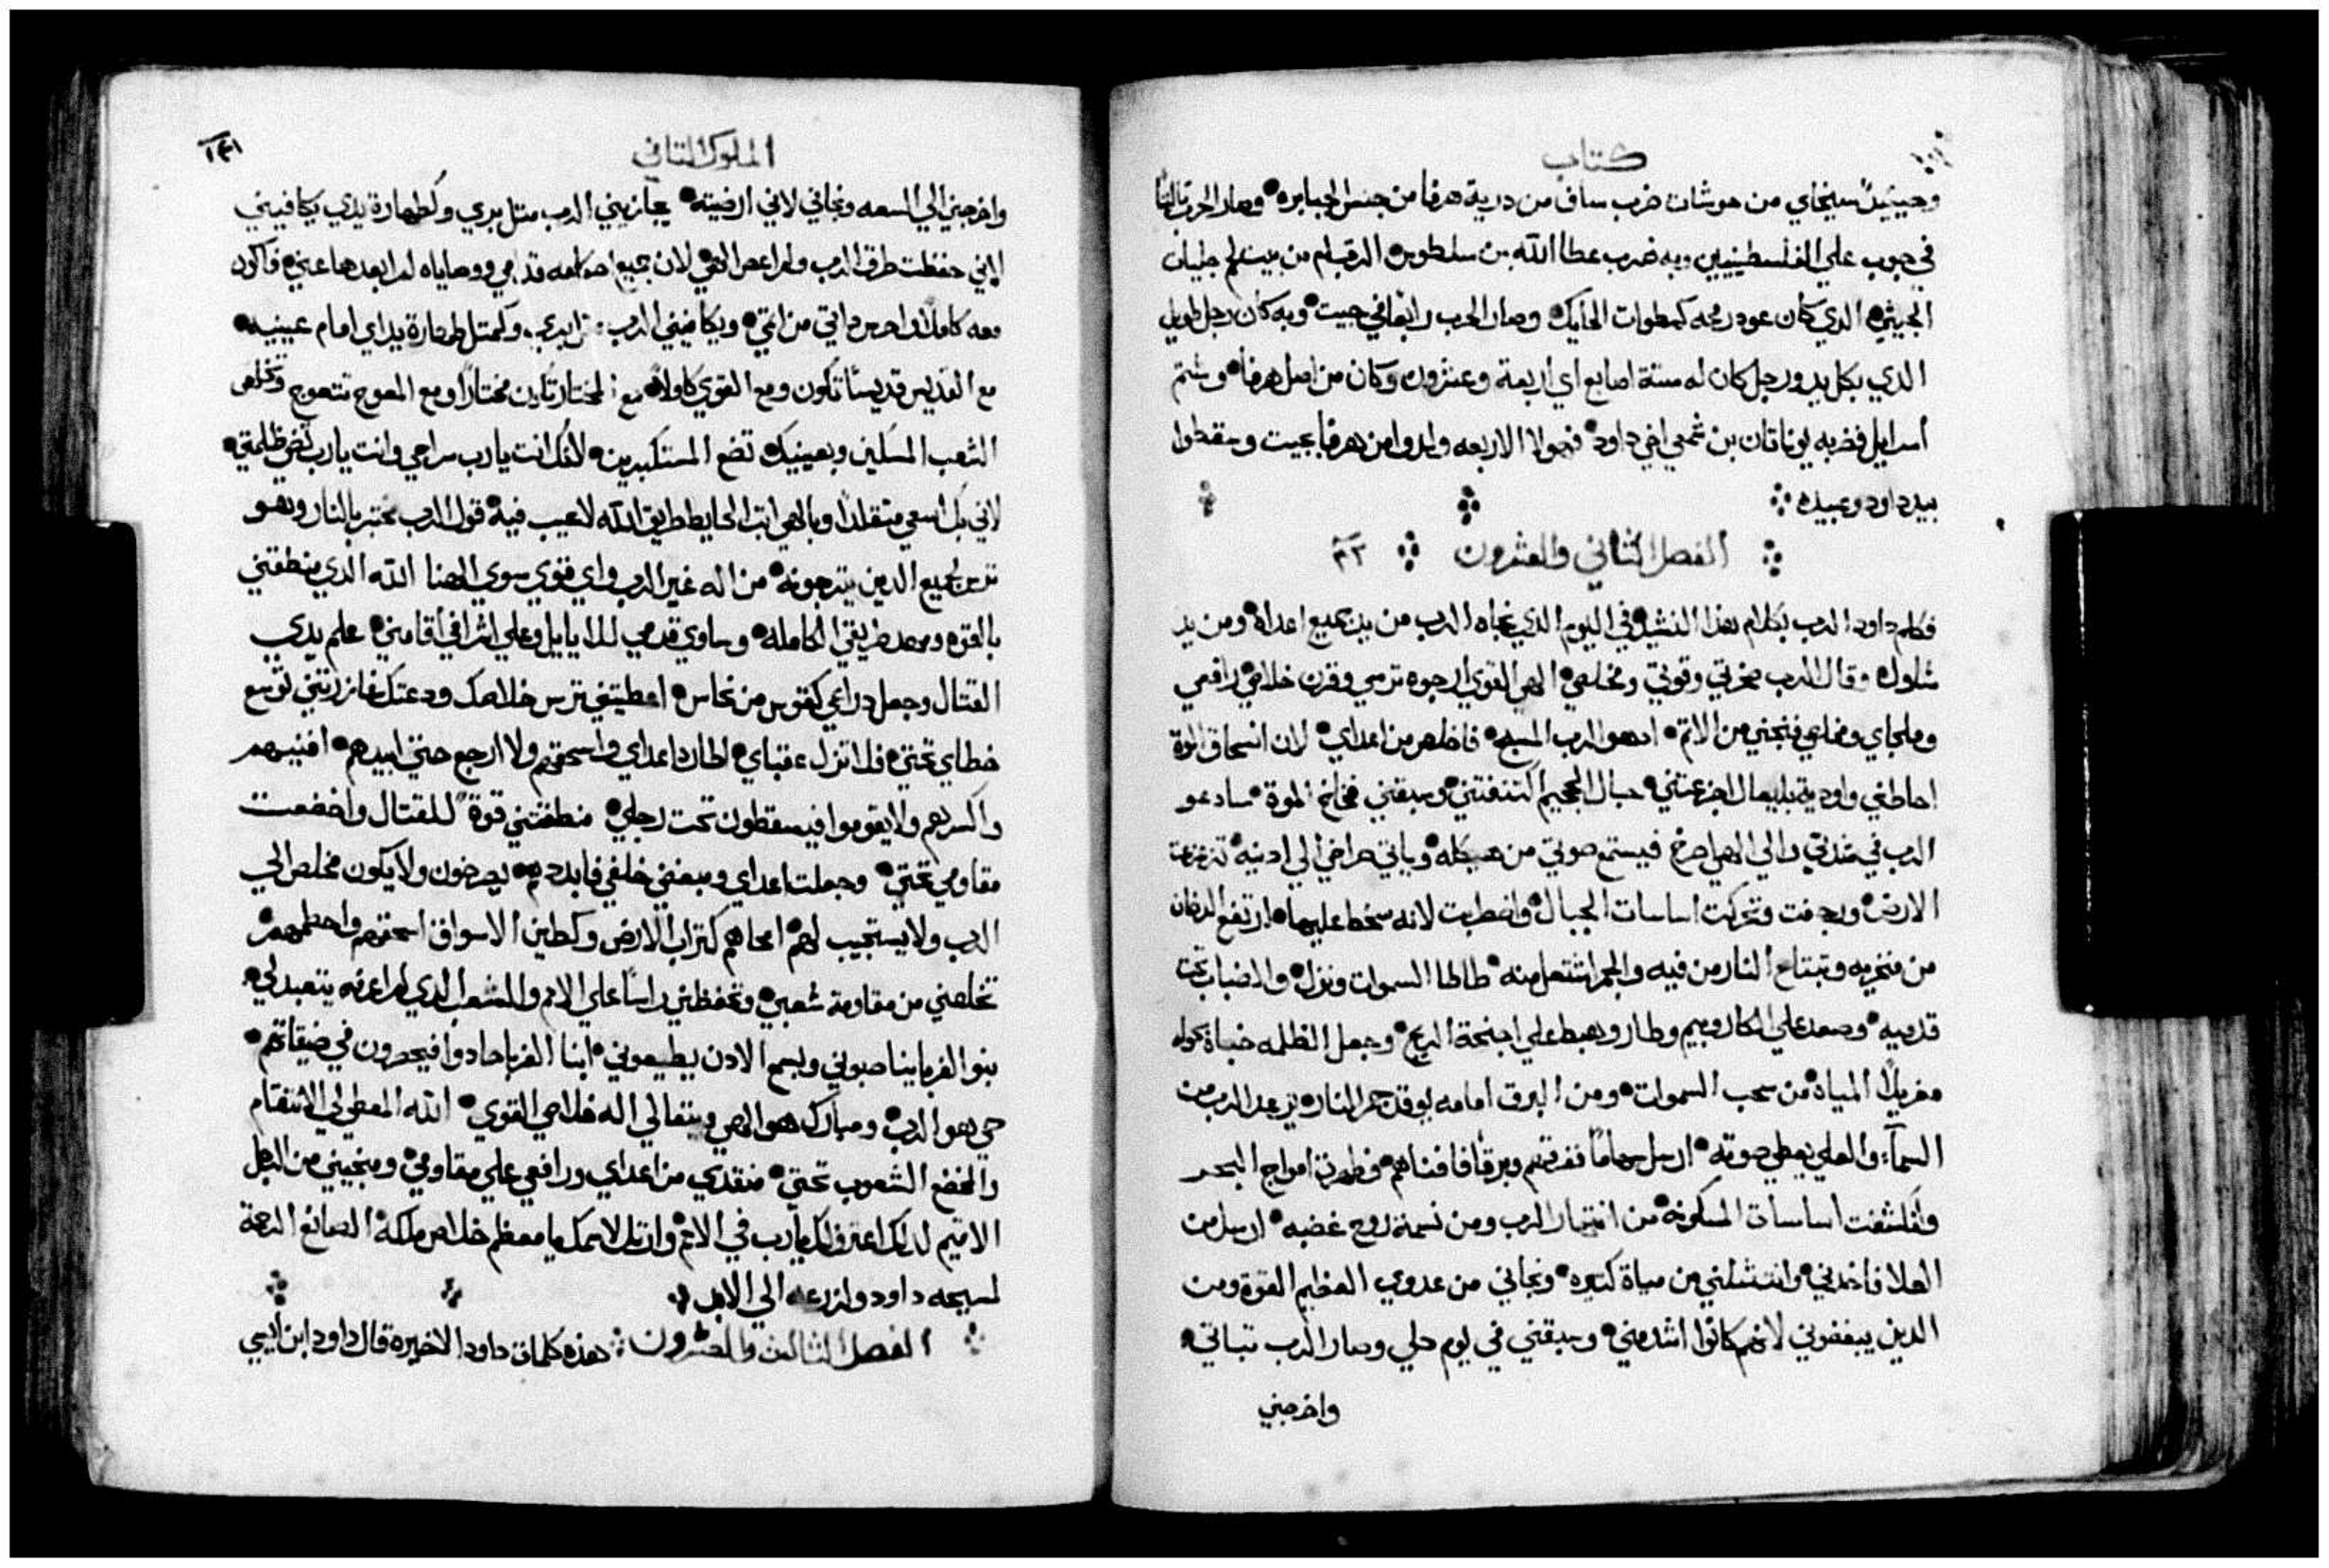 كتاب
وحينيدٍ سبخاي من حوشات ضرب ساف من درية هرفا من جنس الجبابره وصار الحرب تالتا
في جوب علي الفلسطينيين وبه ضرب عطا الله بن سلطوس الرقام من بيت لحم جليات
الجيثي الدي كان عود رمحه كمطوات الحايك وصار الحرب رابعا في جيت وبه كان رجل طويل
الدي بكل يد ورجل كان له ستة اصابع اي اربعة وعشرون وكان من اصل هرفا وشتم
اسرايل فضربه يوناتان بن شمعي اخي داود فهولا الاربعه ولدوا من هرفا بجيت وسقطوا
بيد داود وعبيده
الفصل الثاني والعشرون ٢٢
فكلم داود الرب بكلام هذا النشيد في اليوم الدي نجاه الرب من يد جميع اعداه ومن يد
شاول وقال الرب صخرتي وقوتي ومخلصي الهي القوي ارجوه ترسي وقرن خلاصي رافعي
وملجاي ومخلصي فنجني من الاتم ادعو الرب المسبح فاخلص من اعداي لان انسحاق الموة
احاطني واودية بليعال افزعتني حبال الجحيم اكتنفتني وسبقني فخاخ الموة سادعو
الرب في شدتي والي الهي اصرخ فيستمع صوتي من هيكله وياتي صراخي الي ادنيه تزعزعت
الارض ورجفت وتحركت اساسات الجبال واضطربت لانه سخط عليها ارتفع الدخان
من منخريه وتبتلع النار من فيه والجمر اشتعل منه طاطا السموات ونزل والضباب تحت
قدميه وصعد علي الكاروبيم وطار وهبط علي اجنحة الريح وجعل الظلمه خباة حوله
مغربلًا المياة من سحب السموات ومن البرق امامه يوقد جمر النار يرعد الرب من
السمآء والعلي يعطي صوته ارسل سهامًا ففرقهم وبرقًا فافناهم فظهرت امواج البحر
وانكشفت اساسات المسكونه من انتهار الرب ومن نسمة روح غضبه ارسل من
العلا فاخدني وانتشلني من مياة كتيره ونجاني من عدوي العظيم القوة ومن
الدين يبغضوني لانهم كانوا اشد مني وسبقني في يوم حلي وصار الرب تباتي
واخرجني
الملوك التاني
١٤١
واخرجني الي السعه ونجاني لاني ارضيته يجازيني الرب متل بري وكطهارة يدي يكافيني
لاني حفظت طرق الرب ولم اعص الهي لان جميع احكامه قدامي ووصاياه لم ابعدها عني فاكون
معه كاملًا واحرس داتي من اتمي ويكافيني الرب بري وكمتل طهارة يداي امام عينيه
مع القديس قديسًا تكون ومع القوي كاملًا مع المختار تكون مختارًا ومع المعوج تتعوج وتخلص
الشعب المسكين وبعينيك تضع المستكبرين لانك انت يا رب سراجي وانت يا رب تضي ظلمتي
لاني بك اسعي متقلدًا وبالهي اتب الحايط طريق الله لا عيب فيه قول الرب مختبر بالنار وهو
ترس لجميع الدين يترجونه من اله غير الرب واي قوي سوي الهنا الله الدي منطقني
بالقوه ومهد طريقي الكامله وساوي قدمي للايايل وعلي اشرافي اقامني علم يدي
القتال وجعل دراعي كقوس من نحاس اعطيتني ترس خلاصك ودعتك عازرتني توسع
خطاي تحتي فلا تزل عقباي اطارد اعداي واسحقهم ولا ارجع حتي ابيدهم افنيهم
واكسرهم ولا يقوموا فيسقطون تحت رجلي منطقتني قوة للقتال واخضعت
مقاومي تحتي وجعلت اعداي ومبغضي خلفي فابددهم يصرخون ولا يكون مخلص الي
الرب ولا يستجيب لهم امحاهم كتراب الارض وكطين الاسواق اسحقهم واحطمهم
تخلصني من مقاومة شعبي وتحفظني راسًا علي الامم والشعب الدي لم اعرفه يتعبد لي
بنوا الغربا يناصبوني وبسمع الادن يطيعوني ابنا الغربا حادوا فيحصرون في ضيقاتهم
حي هو الرب ومبارك هو الهي ويتعالي اله خلاصي القوي الله المعطي لي الانتقام
والخضع الشعوب تحتي منقدي من اعداي ورافعي علي مقاومي ومنجيني من الرجل
الاتيم لدلك اعترف لك يا رب في الامم وارتل لاسمك يا معظم خلاص ملكه الصانع الرحمة
لمسيحه داود ولزرعه الي الابد
الفصل الثالث والعشرون هذه كلمات داود الاخيره قال داود ابن ايسي